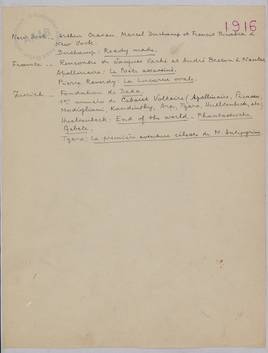 1916
New York. - Arthur Cravan Marcel Duchamp et Francis Picabia à
New York
Duchamp: Ready made.
France. - Rencontre de Jacques Vaché et André Breton à Nantes
Apollinaire: Le Poète assassiné.
Pierre Reverdy: La Lucarne ovale.
Zurich. - Fondation de Dada.
1er numéro de Cabaret Voltaire (Apollinaire, Picasso,
Modigliani, Kandinsky, Arp, Tzara, Huelsenbeck, etc)
Huelsenbeck: End of the world - Phantastische
Gebete.
Tzara: La première aventure céleste de M. Antipyrine